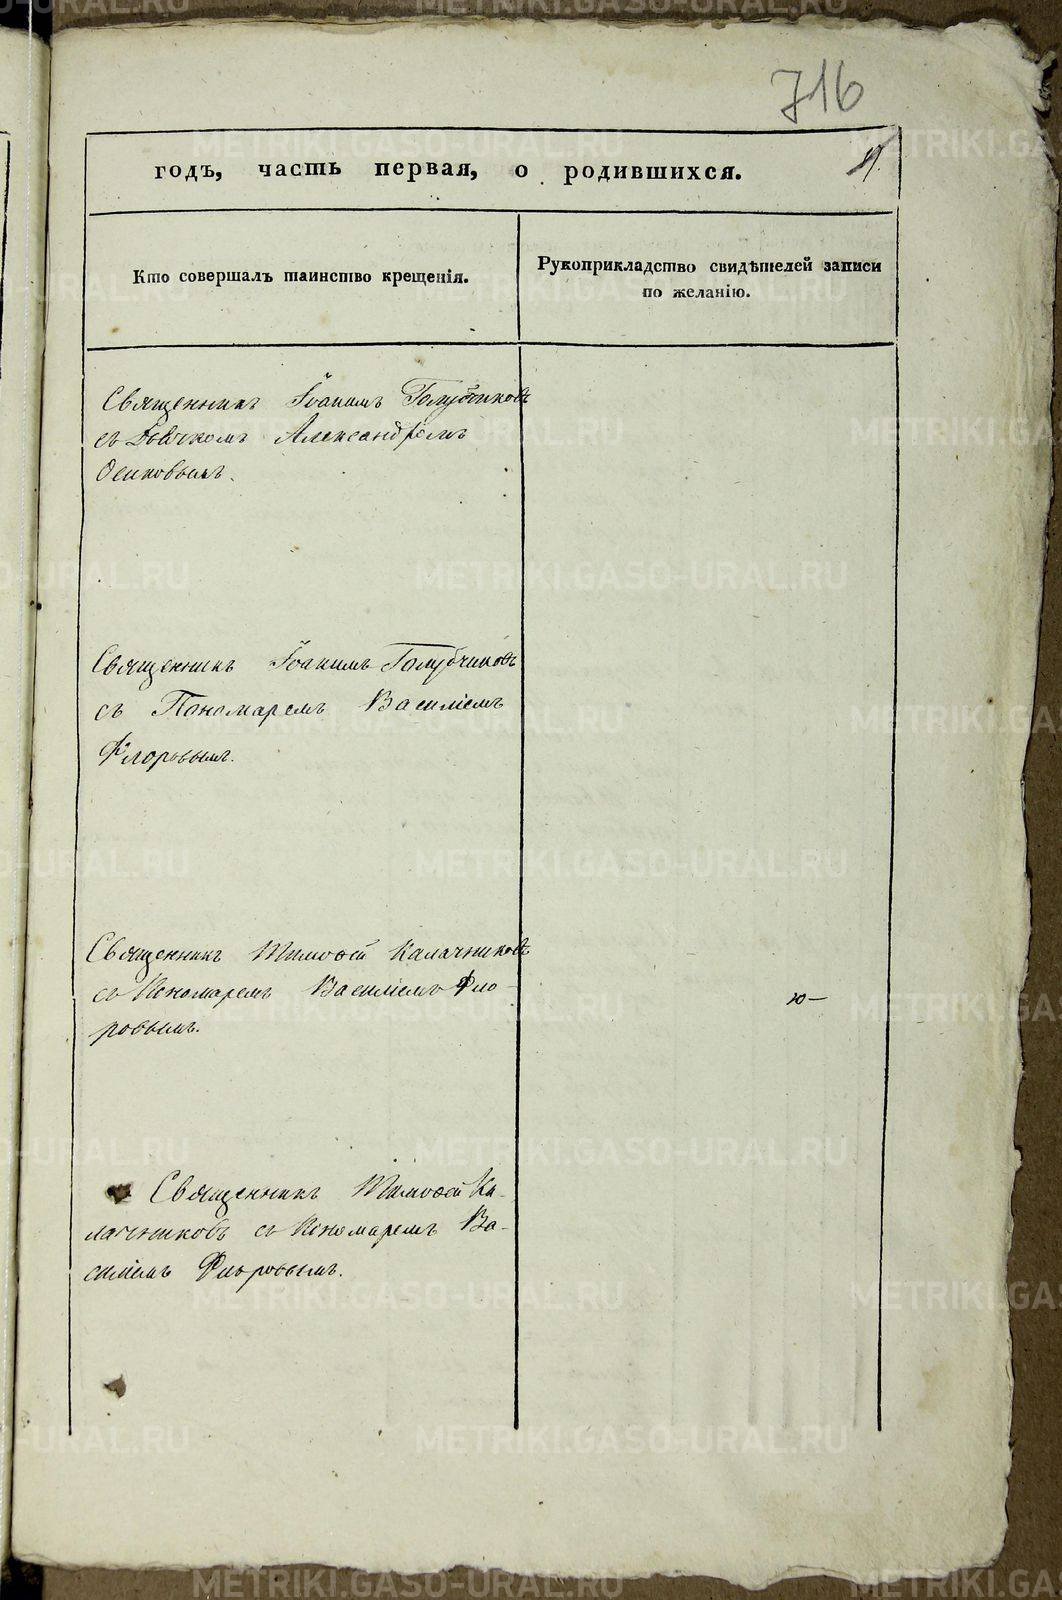 716
годъ, часть первая, о родившихся.
Кто совершалъ таинство крещенія.
Рукоприкладство свидѣтелей записи
по желанію.
Священникъ Іоакимъ Голубчиковъ
съ Дьячкомъ Александромъ
Осиповымъ.
Священникъ Іоакимъ Голубчиковъ
съ Пономаремъ Василіемъ
Флоровымъ.
Священникъ Тимофей Калачниковъ
съ Пономаремъ Василіемъ Фло-
ровымъ.
Священникъ Тимофей Ка-
лачниковъ съ Пономаремъ Ва-
силіемъ Флоровымъ.
METRIKI.GASO-URAL.RU